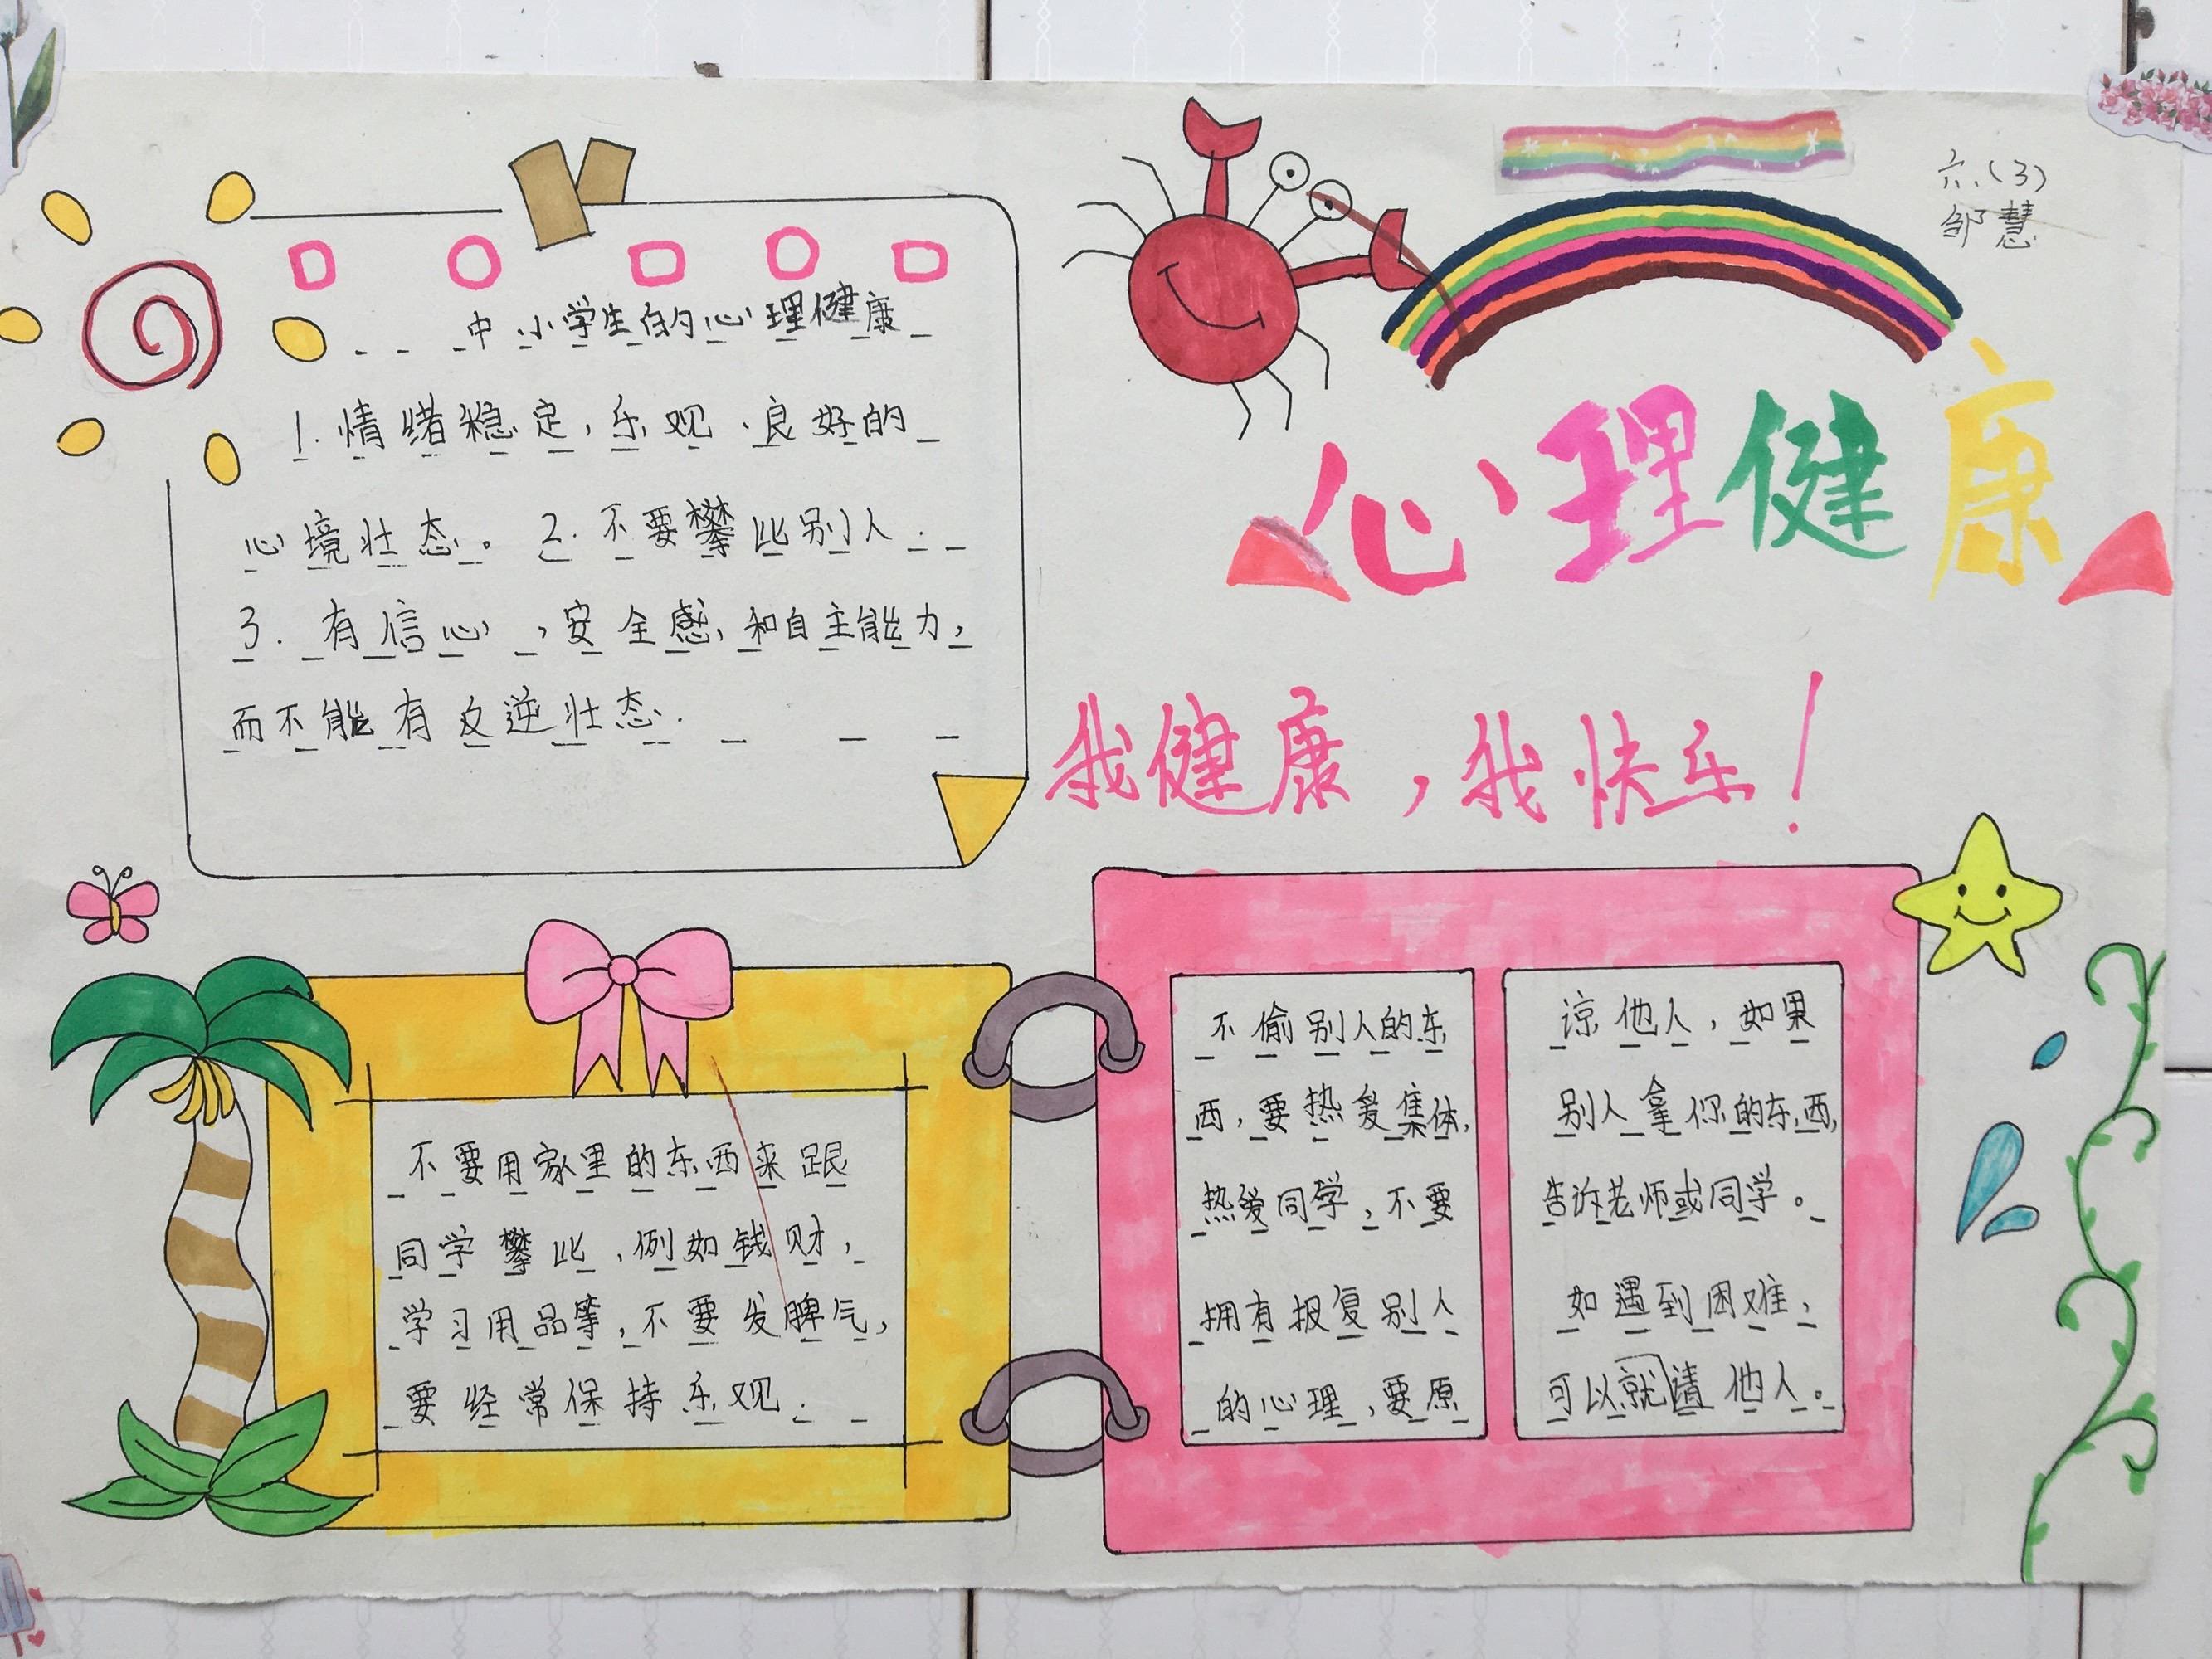 六(3)
邹慧
心理健康
我健康，我快乐！
中小学生的心理健康
1.情绪稳定，乐观、良好的
心境壮态。2.不要攀比别人.
3.有信心，安全感，和自主能力，
而不能有反逆壮态.
不要用家里的东西来跟
同学攀比，例如钱财，
学习用品等，不要发脾气，
要经常保持乐观.
不偷别人的东
西，要热爱集体，
热爱同学，不要
拥有报复别人
的心理，要原
谅他人，如果
别人拿你的东西，
告诉老师或同学。
如遇到困难，
可以就请他人。